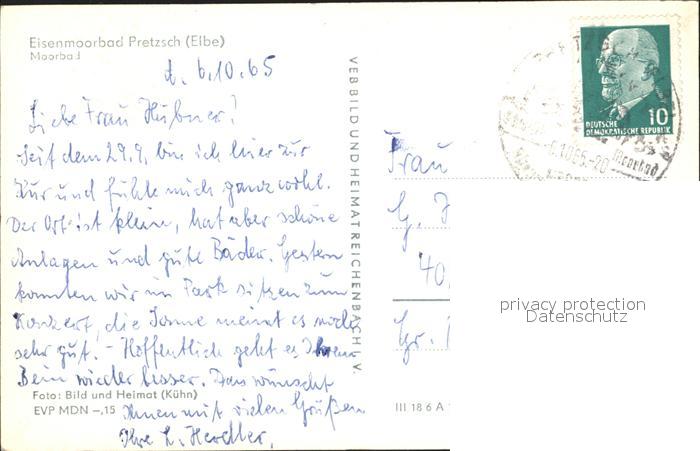 Eisenmoorbad Pretzsch (Elbe)
Moorbad
d. 6.10.65
Liebe Frau Hübner!
Seit dem 29.9. bin ich hier zur
Kur und fühle mich ganz wohl.
Der Ort ist klein, hat aber schöne
Anlagen und gute Bäder. Gestern
konnten wir im Park sitzen zum
Konzert, die Sonne meint es noch
sehr gut. - Hoffentlich geht es Ihrem
Bein wieder besser. Das wünscht
Ihnen mit vielen Grüßen
Ihre L.
Foto: Bild und Heimat (Kühn)
EVP MDN –,15
VEB BILD UND HEIMAT REICHENBACH I. V.
III 18 6 A
DEUTSCHE
DEMOKRATISCHE REPUBLIK
10
-6.10.65.-20
Moorbad
Frau
G.
40
Gr.
privacy protection
Datenschutz